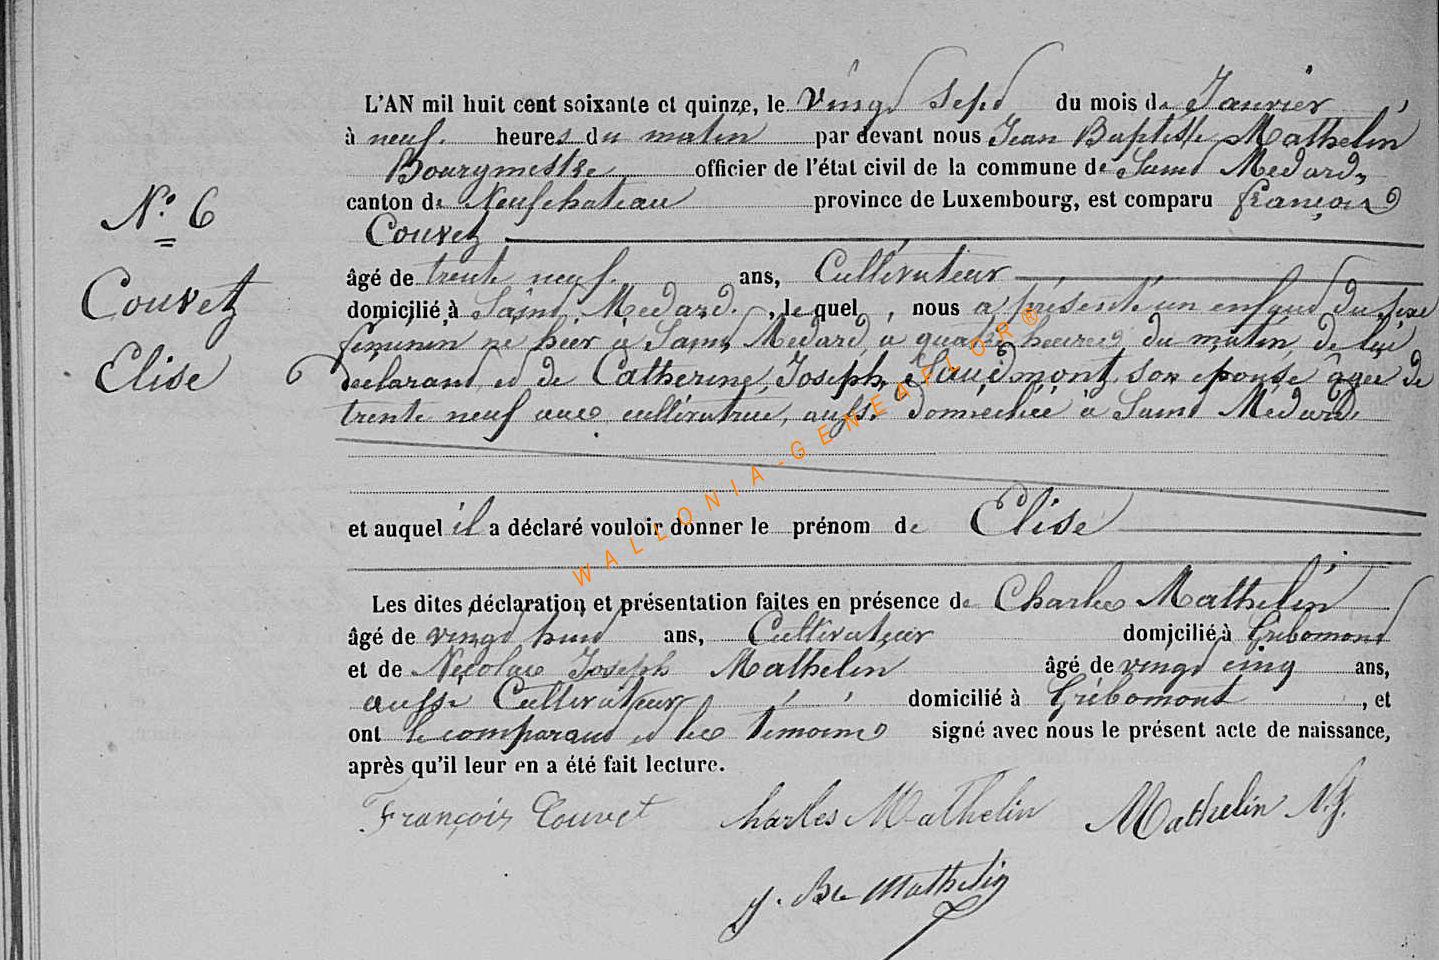 L'AN mil huit cent soixante et quinze, le vingt sept du mois de Janvier,
à neuf heures du matin par devant nous Jean Baptiste Mathelin
Bourgmestre officier de l'état civil de la commune de Saint Médard,
canton de Neufchateau province de Luxembourg, est comparu françois
Couvet
âgé de trente neuf ans, Cultivateur
domicilié à Saint Médard, lequel, nous a présenté un enfant du sexe
féminin né hier à Saint Médard à quatre heures du matin de lui
déclarant et de Catherine, Joseph, son épouse âgée de
trente neuf ans cultivatrice, aussi domiciliée à Saint Médard
N° 6
Couvet
Elise
et auquel il a déclaré vouloir donner le prénom de Elise
Les dites déclaration et présentation faites en présence de Charles Mathelin
âgé de vingt huit ans, Cultivateur domicilié à Gribomont
et de Nicolas Joseph Mathelin âgé de vingt cinq ans,
aussi Cultivateur domicilié à Gribomont, et
ont le comparant et les témoins signé avec nous le présent acte de naissance,
après qu'il leur en a été fait lecture.
François Couvet Charles Mathelin Mathelin N.J.
J. Bte Mathelin
WALLONIA-GENEAFLOR®